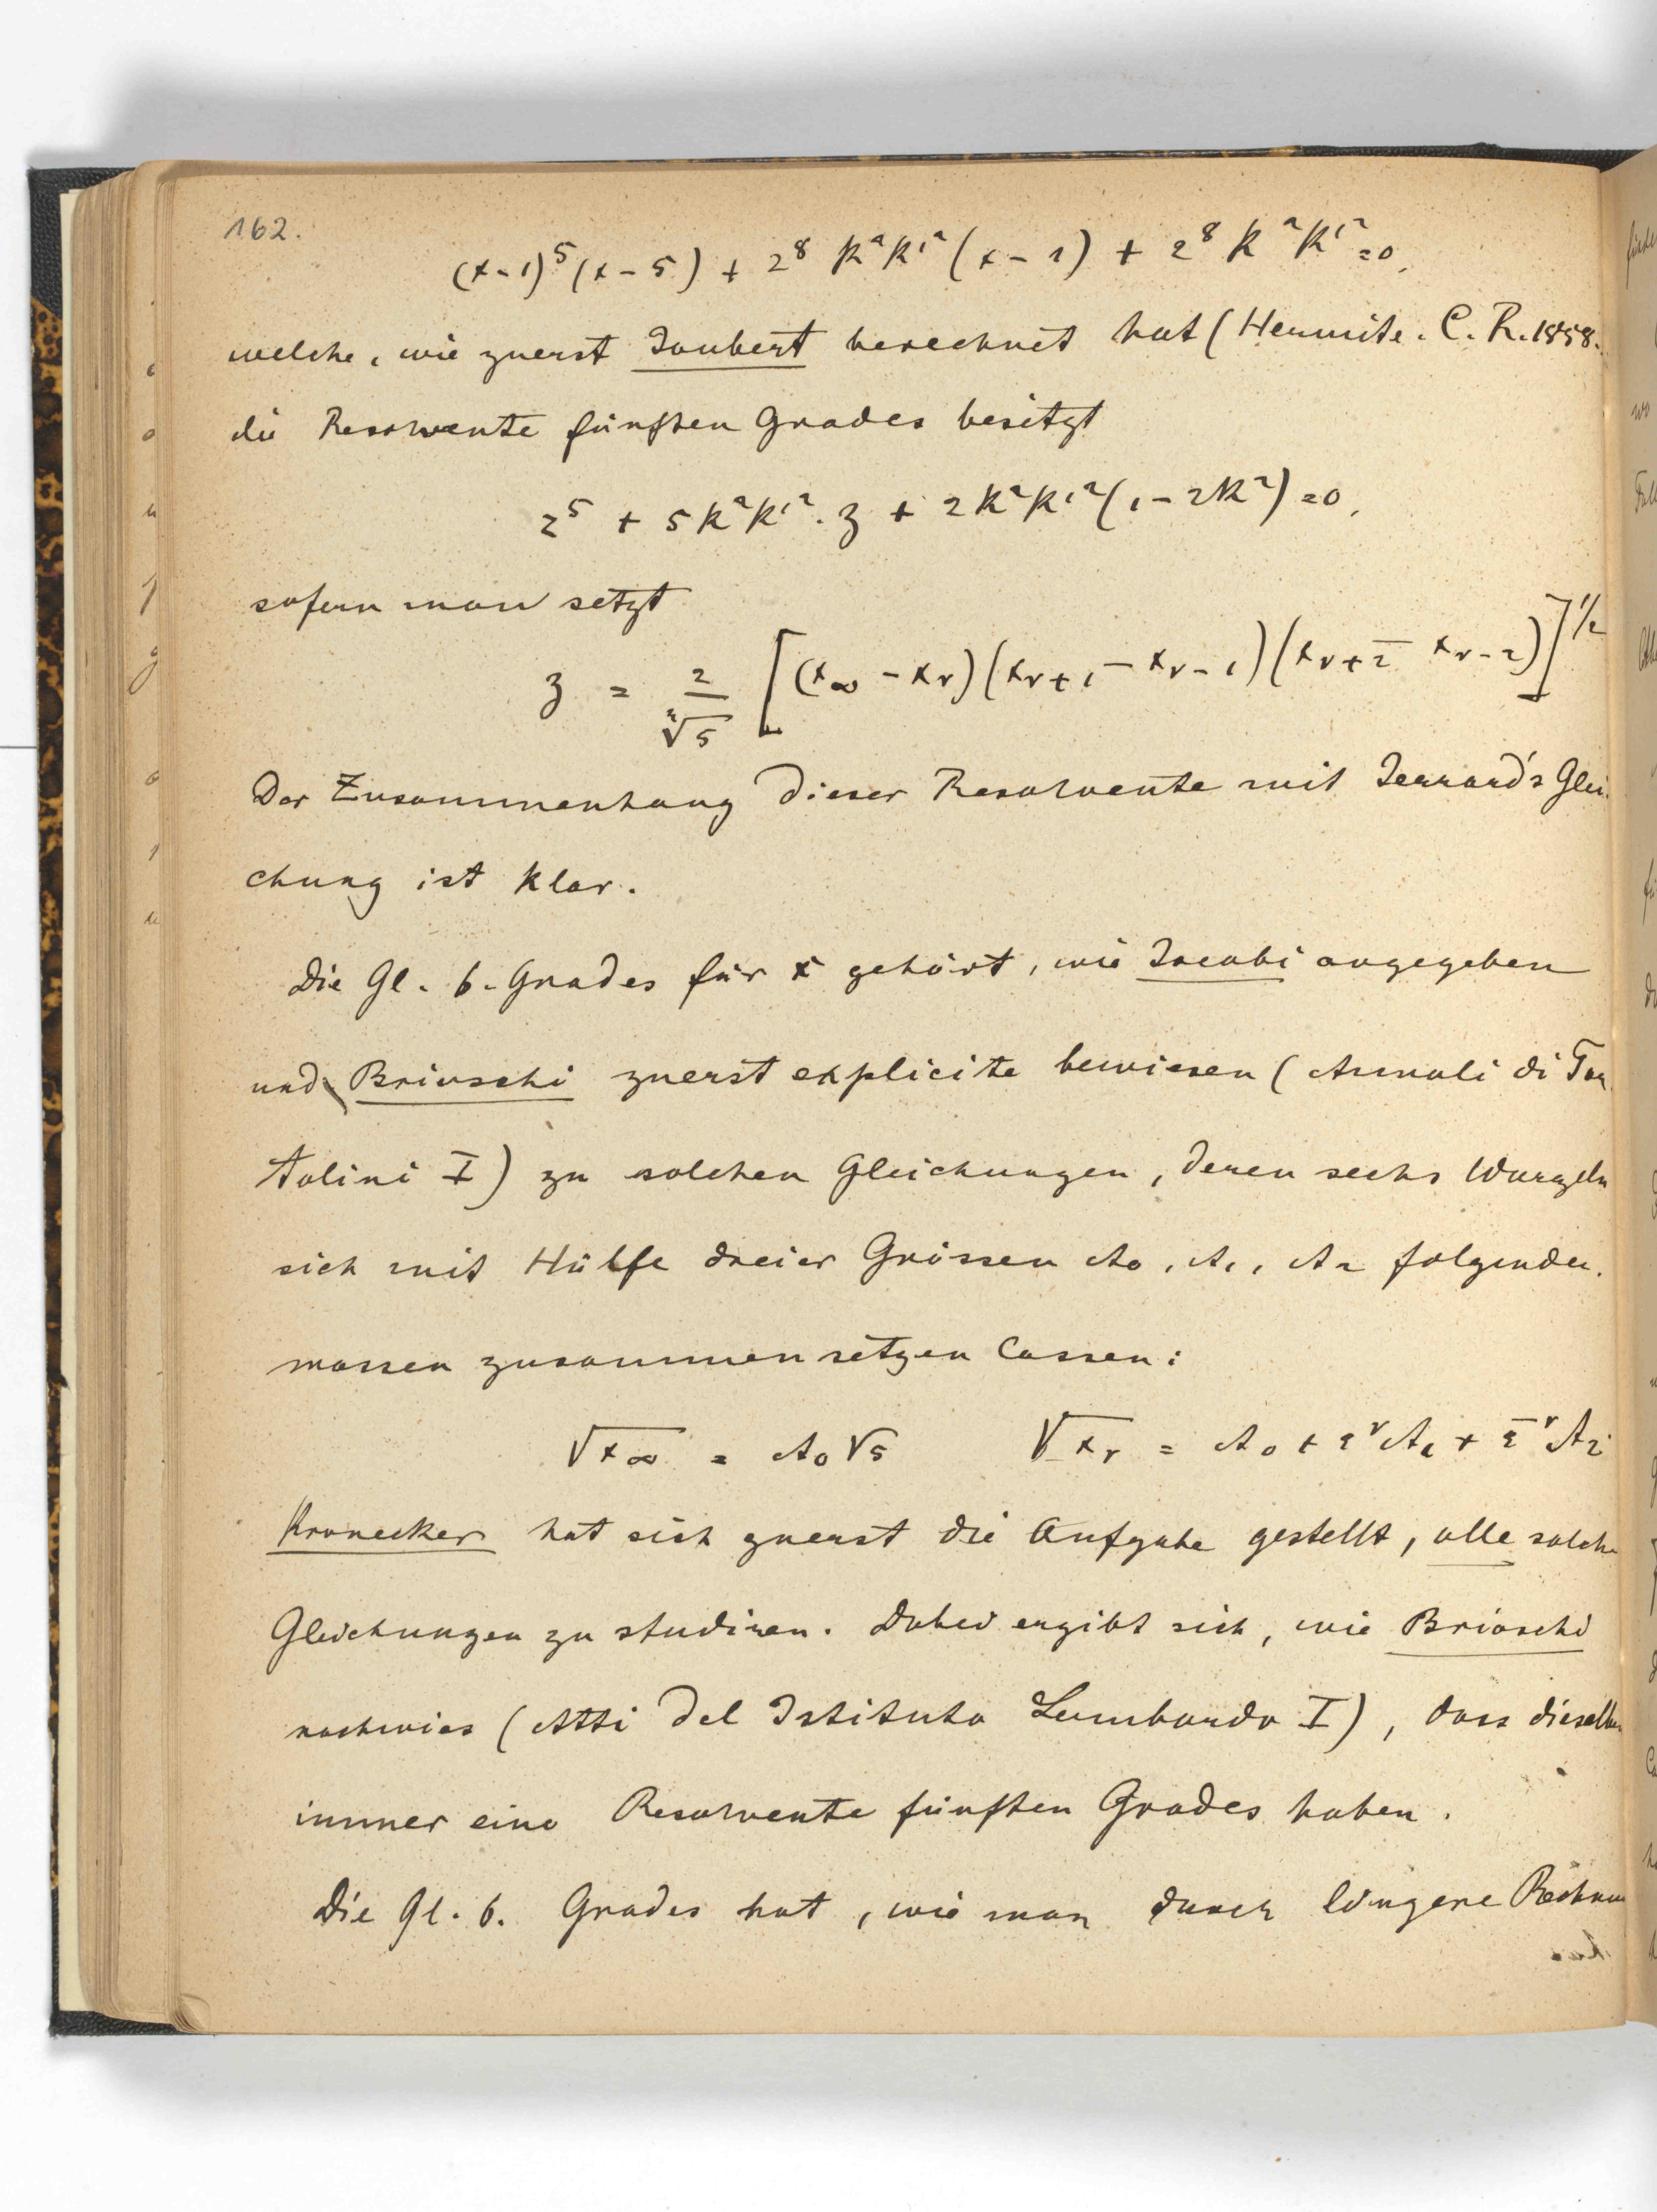 162.
(x-1)⁵(x-5) + 2⁸ k²k'²(x-1) + 2⁸ k²k'² = 0,
welche, wie zuerst Joubert berechnet hat (Hermite. C. R. 1858.
die Resolvente fünften Grades besitzt
z⁵ + 5k²k'². z + 2k²k'²(1-2k²) = 0,
sofern man setzt
z = 2/∜5 [(x∞ - xν)(xν+1 - xν-1)(xν+2 - xν-2)]^1/2
Der Zusammenhang dieser Resolvente mit Jerrard's Glei-
chung ist klar.
Die Gl. 6. Grades für x gehört, wie Jacobi angegeben
und Brioschi zuerst explicite bewiesen (Annali di Tor
tolini I) zu solchen Gleichungen, deren sechs Wurzeln
sich mit Hülfe dreier Grössen A₀, A₁, A₂ folgender.
massen zusammensetzen lassen:
√x∞ = A₀√5 √xν = A₀ + ε^ν A₁ + ε̄^ν A₂
Kronecker hat sich zuerst die Aufgabe gestellt, alle solche
Gleichungen zu studiren. Dabei ergibt sich, wie Brioschi
nachwies (Atti del Istituto Lombardo I), dass dieselben
immer eine Resolvente fünften Grades haben.
Die Gl. 6. Grades hat, wie man durch längere Rechnun